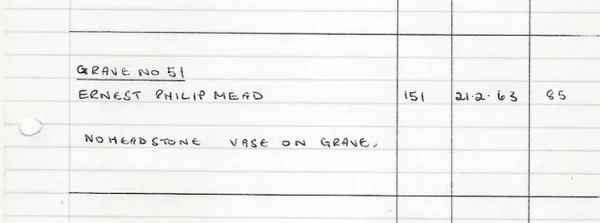 GRAVE NO 51
ERNEST PHILIP MEAD 151 21·2·63 85
NO HEADSTONE VASE ON GRAVE.